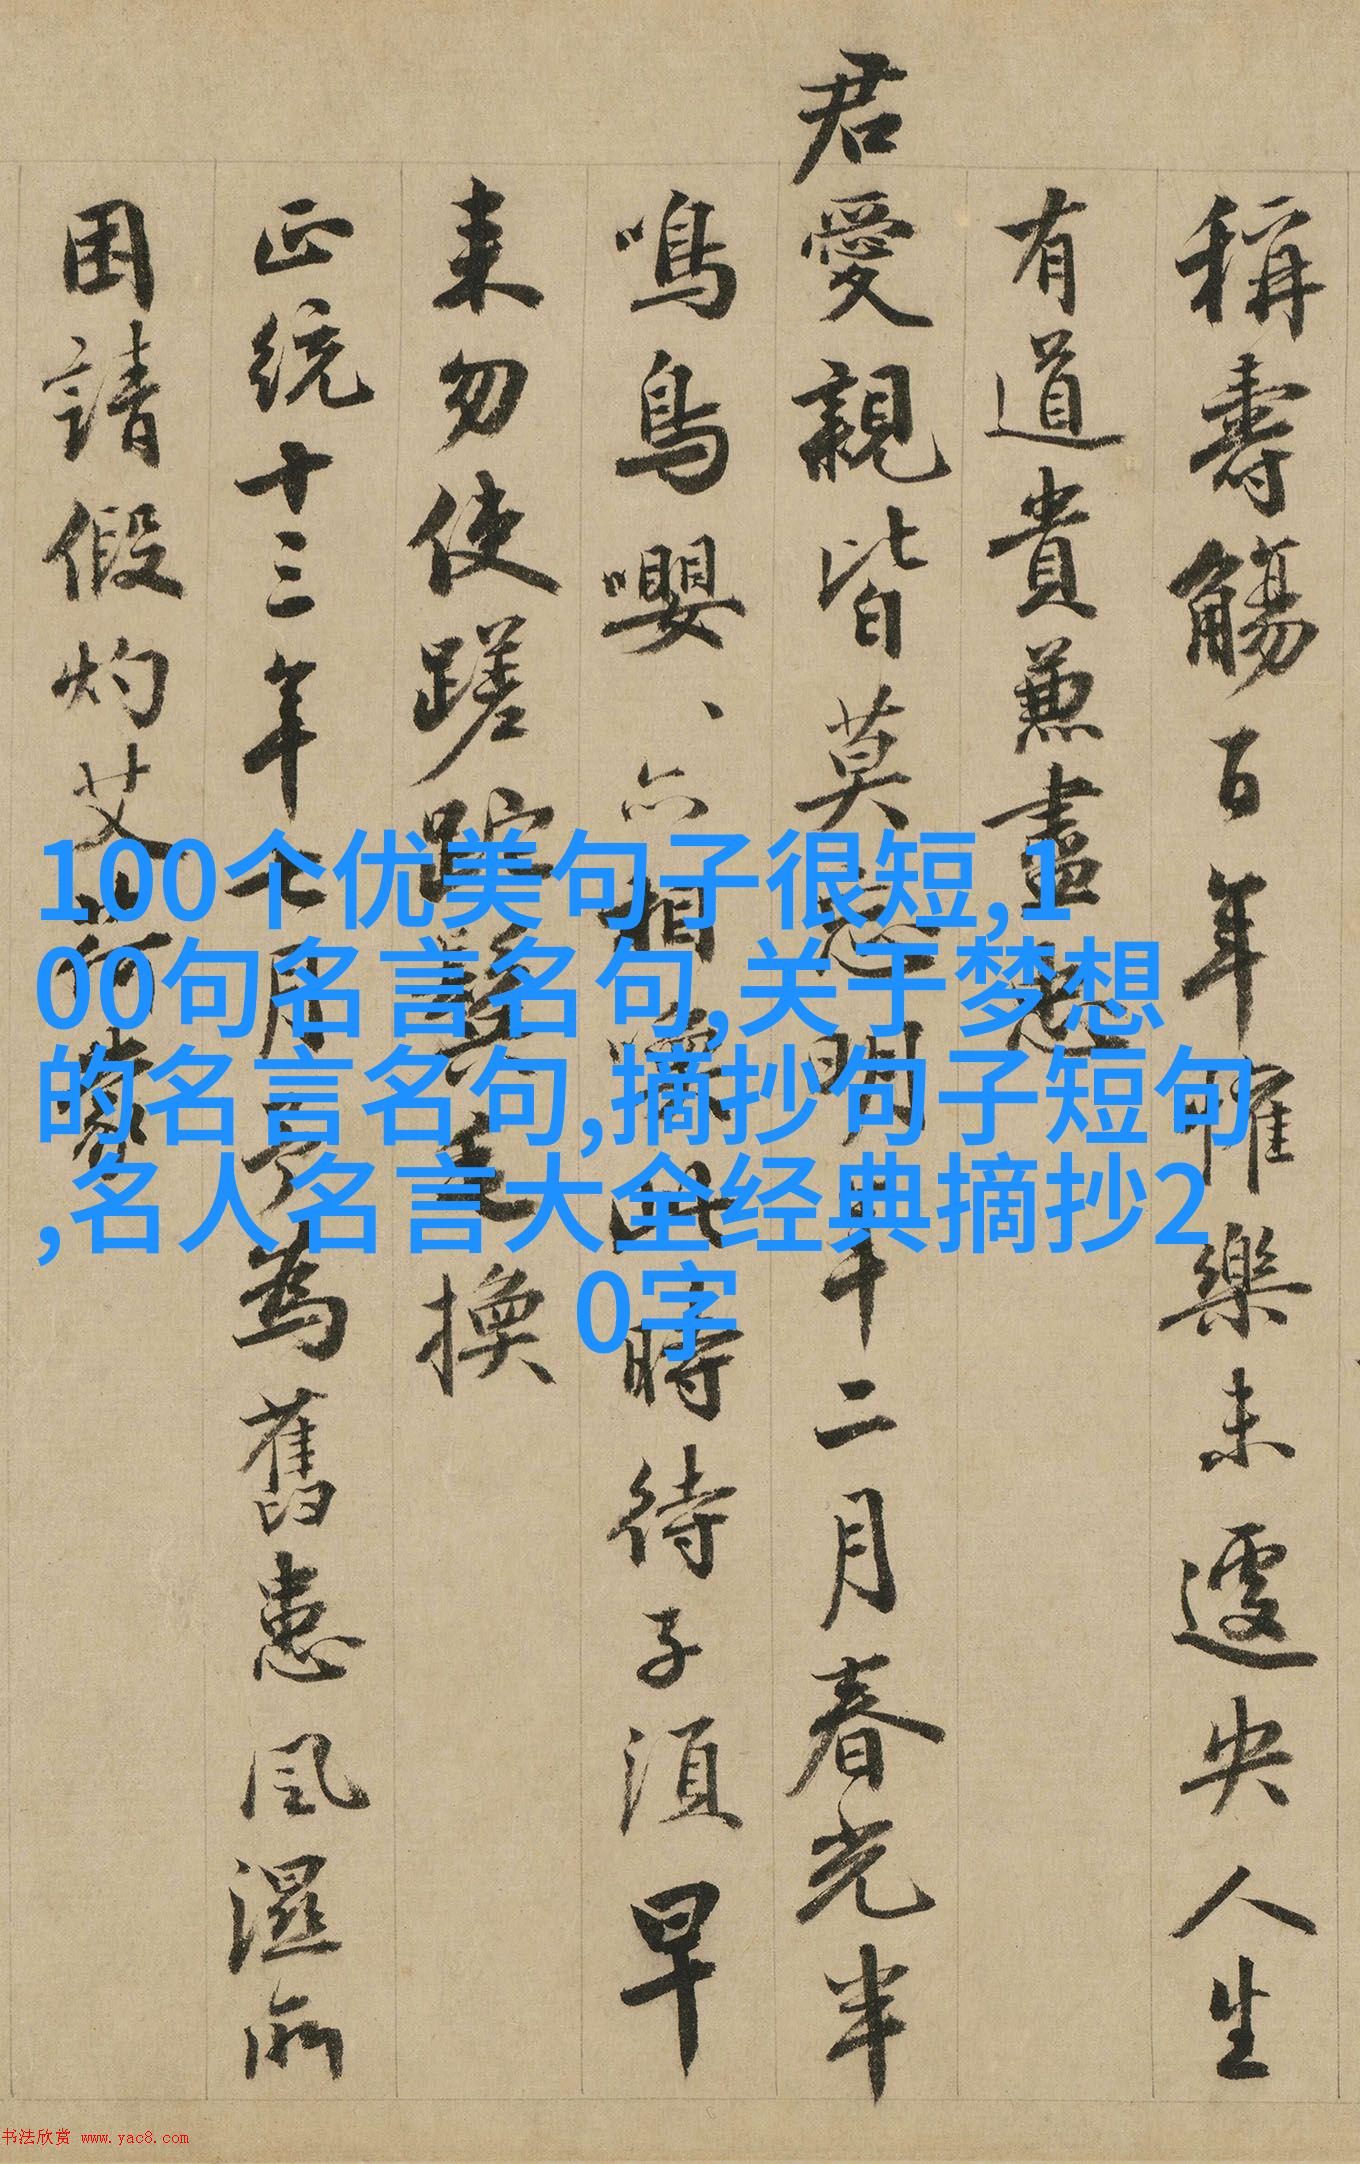 稱壽觴百年懽樂未遽央人生
有道貴兼盡忠
君愛親皆莫忘明年二月春光半
鳴鳥嚶、亦相喚此時待子須早
来勿使蹉跎鬢毛換
正統十三年七月予為舊患風濕所
困請假灼艾
100个优美句子很短,1
00句名言名句,关于梦想
的名言名句,摘抄句子短句
,名人名言大全经典摘抄2
0字
书法欣赏 www.yac8.com